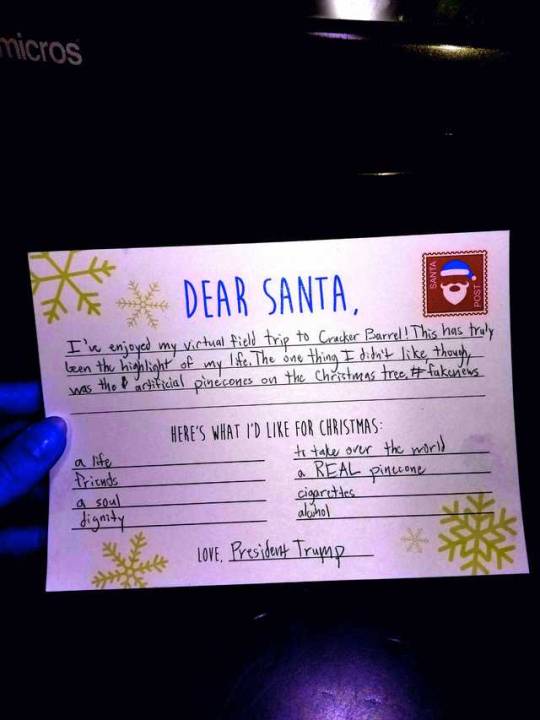 micros
SANTA
POST
DEAR SANTA,
I've enjoyed my virtual field trip to Cracker Barrel! This has truly
been the highlight of my life. The one thing I didn't like, though,
was the artificial pinecones on the Christmas tree. #fakenews
HERE'S WHAT I'D LIKE FOR CHRISTMAS:
a life
friends
a soul
dignity
to take over the world
a REAL pinecone
cigarettes
alcohol
LOVE, President Trump